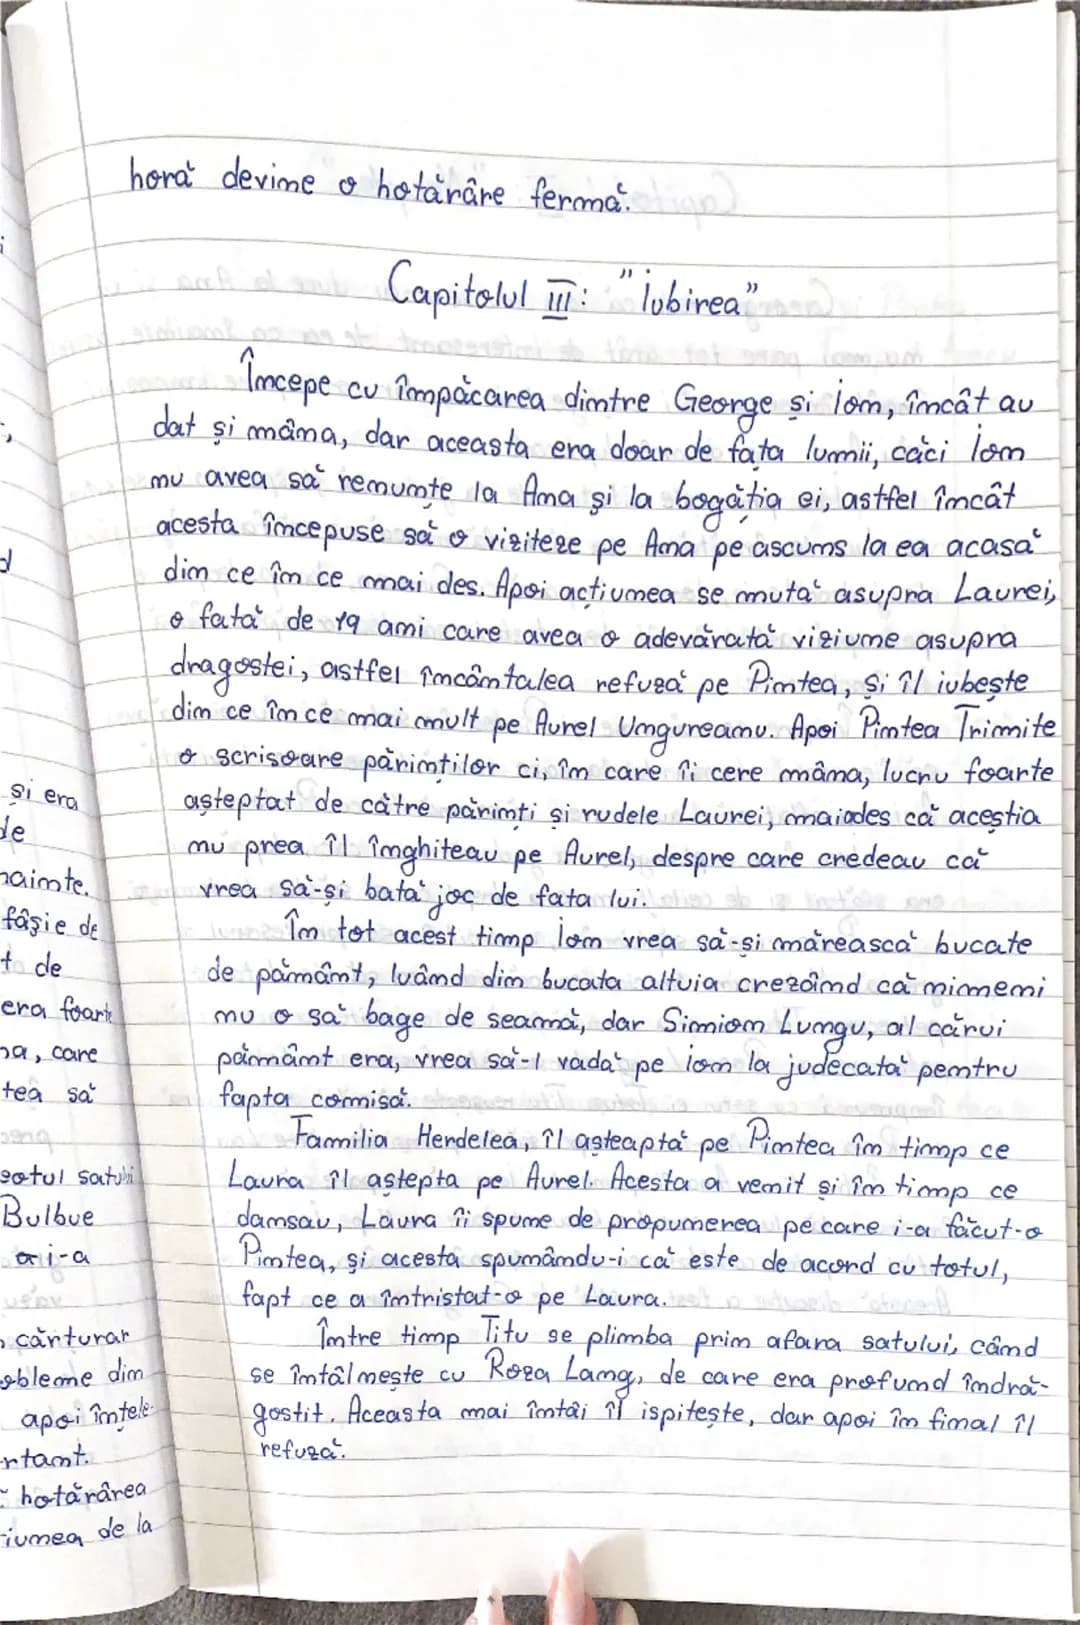 horă devine o hotărâre fermă.
Capitolul III: "Iubirea"
Începe cu împăcarea dintre George și Ion, încât au
dat și mâna, dar aceasta era doar de fața lumii, căci Ion
nu avea să renunțe la Ana și la bogăția ei, astfel încât
acesta începuse să o viziteze pe Ana pe ascuns la ea acasă
din ce în ce mai des. Apoi acțiunea se mută asupra Laurei,
o fată de 19 ani care avea o adevărată viziune asupra
dragostei, astfel încântalea refuză pe Pintea, și îl iubește
din ce în ce mai mult pe Aurel Ungureanu. Apoi Pintea Trimite
o scrisoare părinților ci, în care îi cere mâna, lucru foarte
așteptat de către părinți și rudele Laurei, maiades că aceștia
nu prea îl înghiteau pe Aurel, despre care credeau că
vrea să-și bată joc de fata lui.
În tot acest timp Ion vrea să-și mărească bucate
de pământ, luând din bucata altuia crezând că nimeni
nu o să bage de seamă, dar Simion Lungu, al cărui
pământ era, vrea să-l vadă pe Ion la judecată pentru
fapta comisă.
Familia Herdelea, îl așteaptă pe Pintea în timp ce
Laura îl aștepta pe Aurel. Acesta a venit și în timp ce
dansau, Laura îi spune de propunerea pe care i-a făcut-o
Pintea, și acesta spunându-i că este de acord cu totul,
fapt ce a întristat-o pe Laura.
Între timp Titu se plimba prin afara satului, când
se întâlnește cu Roza Lang, de care era profund îndră-
gostit. Aceasta mai întâi îl ispitește, dar apoi în final îl
refuză.
și era
de
nainte.
fâșie de
t de
era foarte
na, care
tea să
satului
Bulbuc
o i-a
cânturar
obleme din
apoi înțele-
rtant.
hotărârea
iunea de la